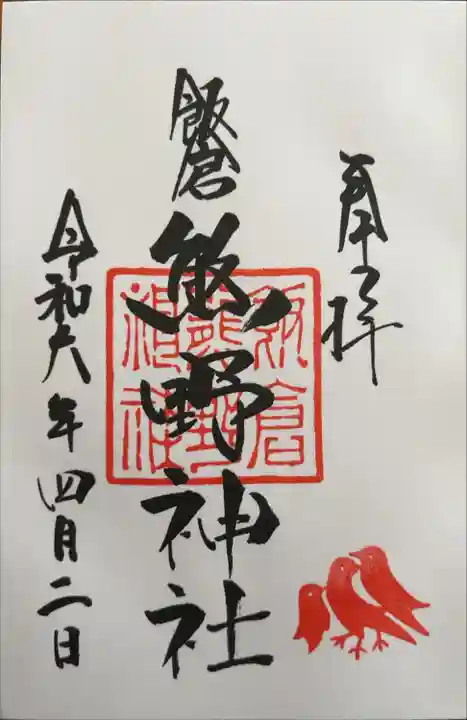 奉拝
飯倉
熊野神社
飯倉熊野神社
令和六年四月二日